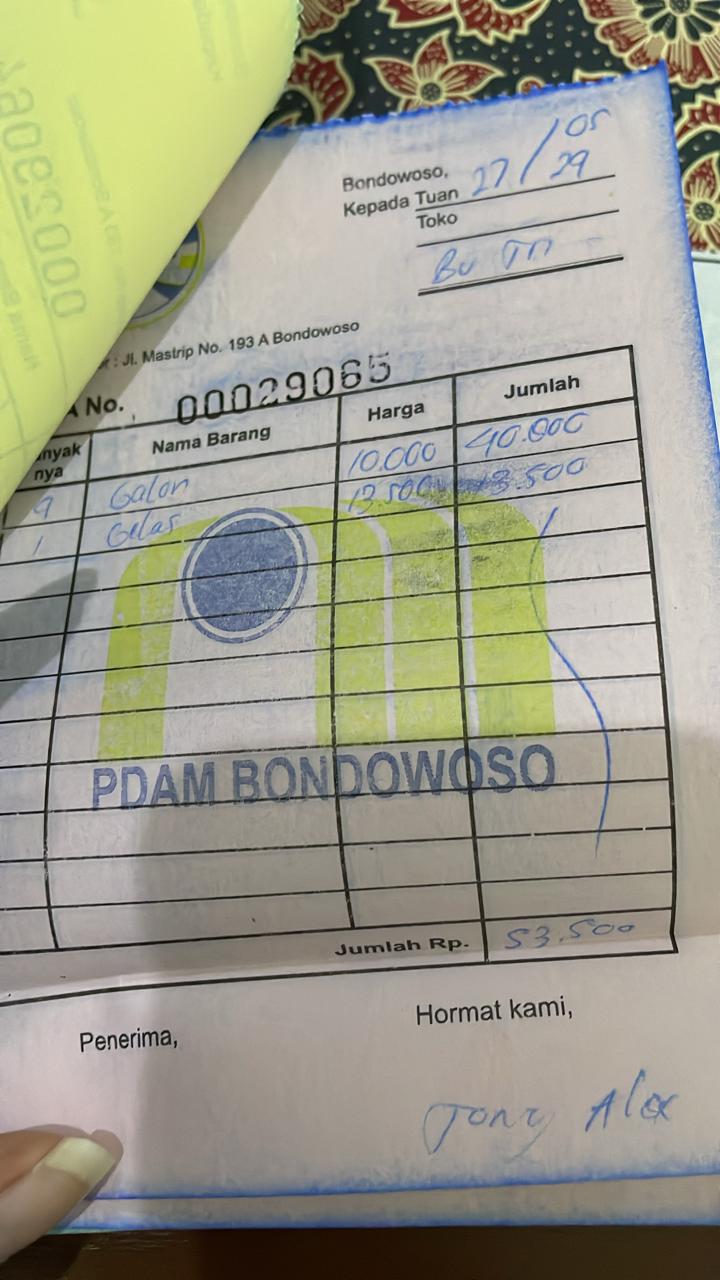 Bondowoso, 27/05
29
Kepada Tuan
Toko
Bu Tri
: Jl. Mastrip No. 193 A Bondowoso
A No. 00029065
nyak nya Nama Barang Harga Jumlah
4 Galon 10.000 40.000
1 Gelas 13.500 13.500
PDAM BONDOWOSO
Jumlah Rp. 53.500
Penerima, Hormat kami,
Tony Alex